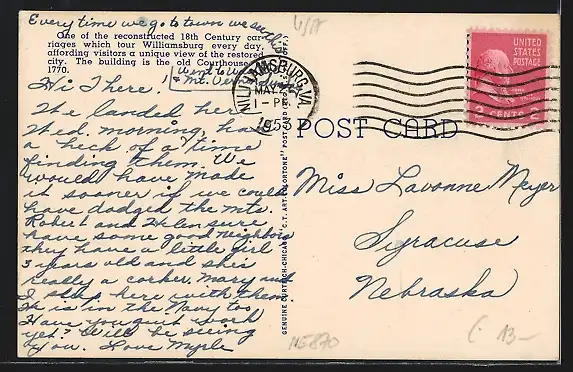 Every time we go to town we see this
One of the reconstructed 18th Century car-
riages which tour Williamsburg every day,
affording visitors a unique view of the restored
city. The building is the old Courthouse of
1770.
Mt. Ver
Hi There.
We landed here
Wed. morning, had
a heck of a time
finding them. We
would have made
it sooner if we could
have dodged the mts.
Robert and
have some good neighbors
they have a little girl
5 years old and she's
really a corker. Mary and
I sleep here with them.
He is in the Navy too
Have you quit work
yet? Will be seeing
you. Love
GENUINE CURTEICH-CHICAGO "C.T. ART-COLORTONE" POST CARD
WILLIAMSBURG, VA.
MAY
1-PM
1953
UNITED
STATES
POSTAGE
2 CENTS 2
POST CARD
Miss Lavonne Meyer
Syracuse
Nebraska
U/A
ME870
13-